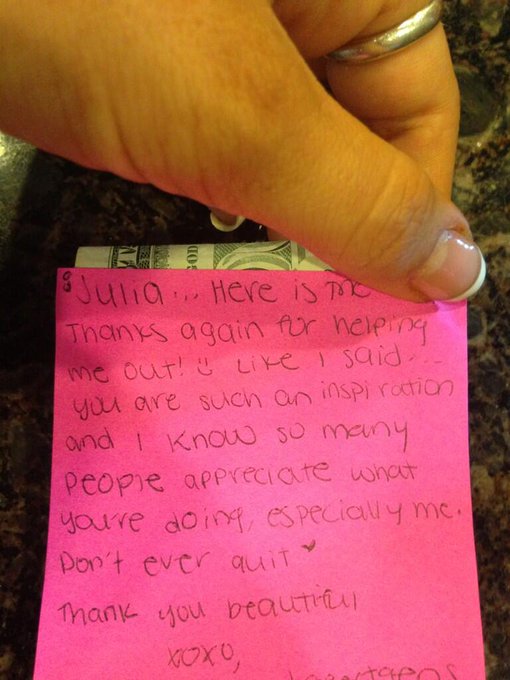 GOD
Julia... Here is
Thanks again for helping
me out! Like I said...
you are such an inspiration
and I know so many
people appreciate what
you're doing, especially me.
Don't ever quit
Thank you beautiful
xoxo,